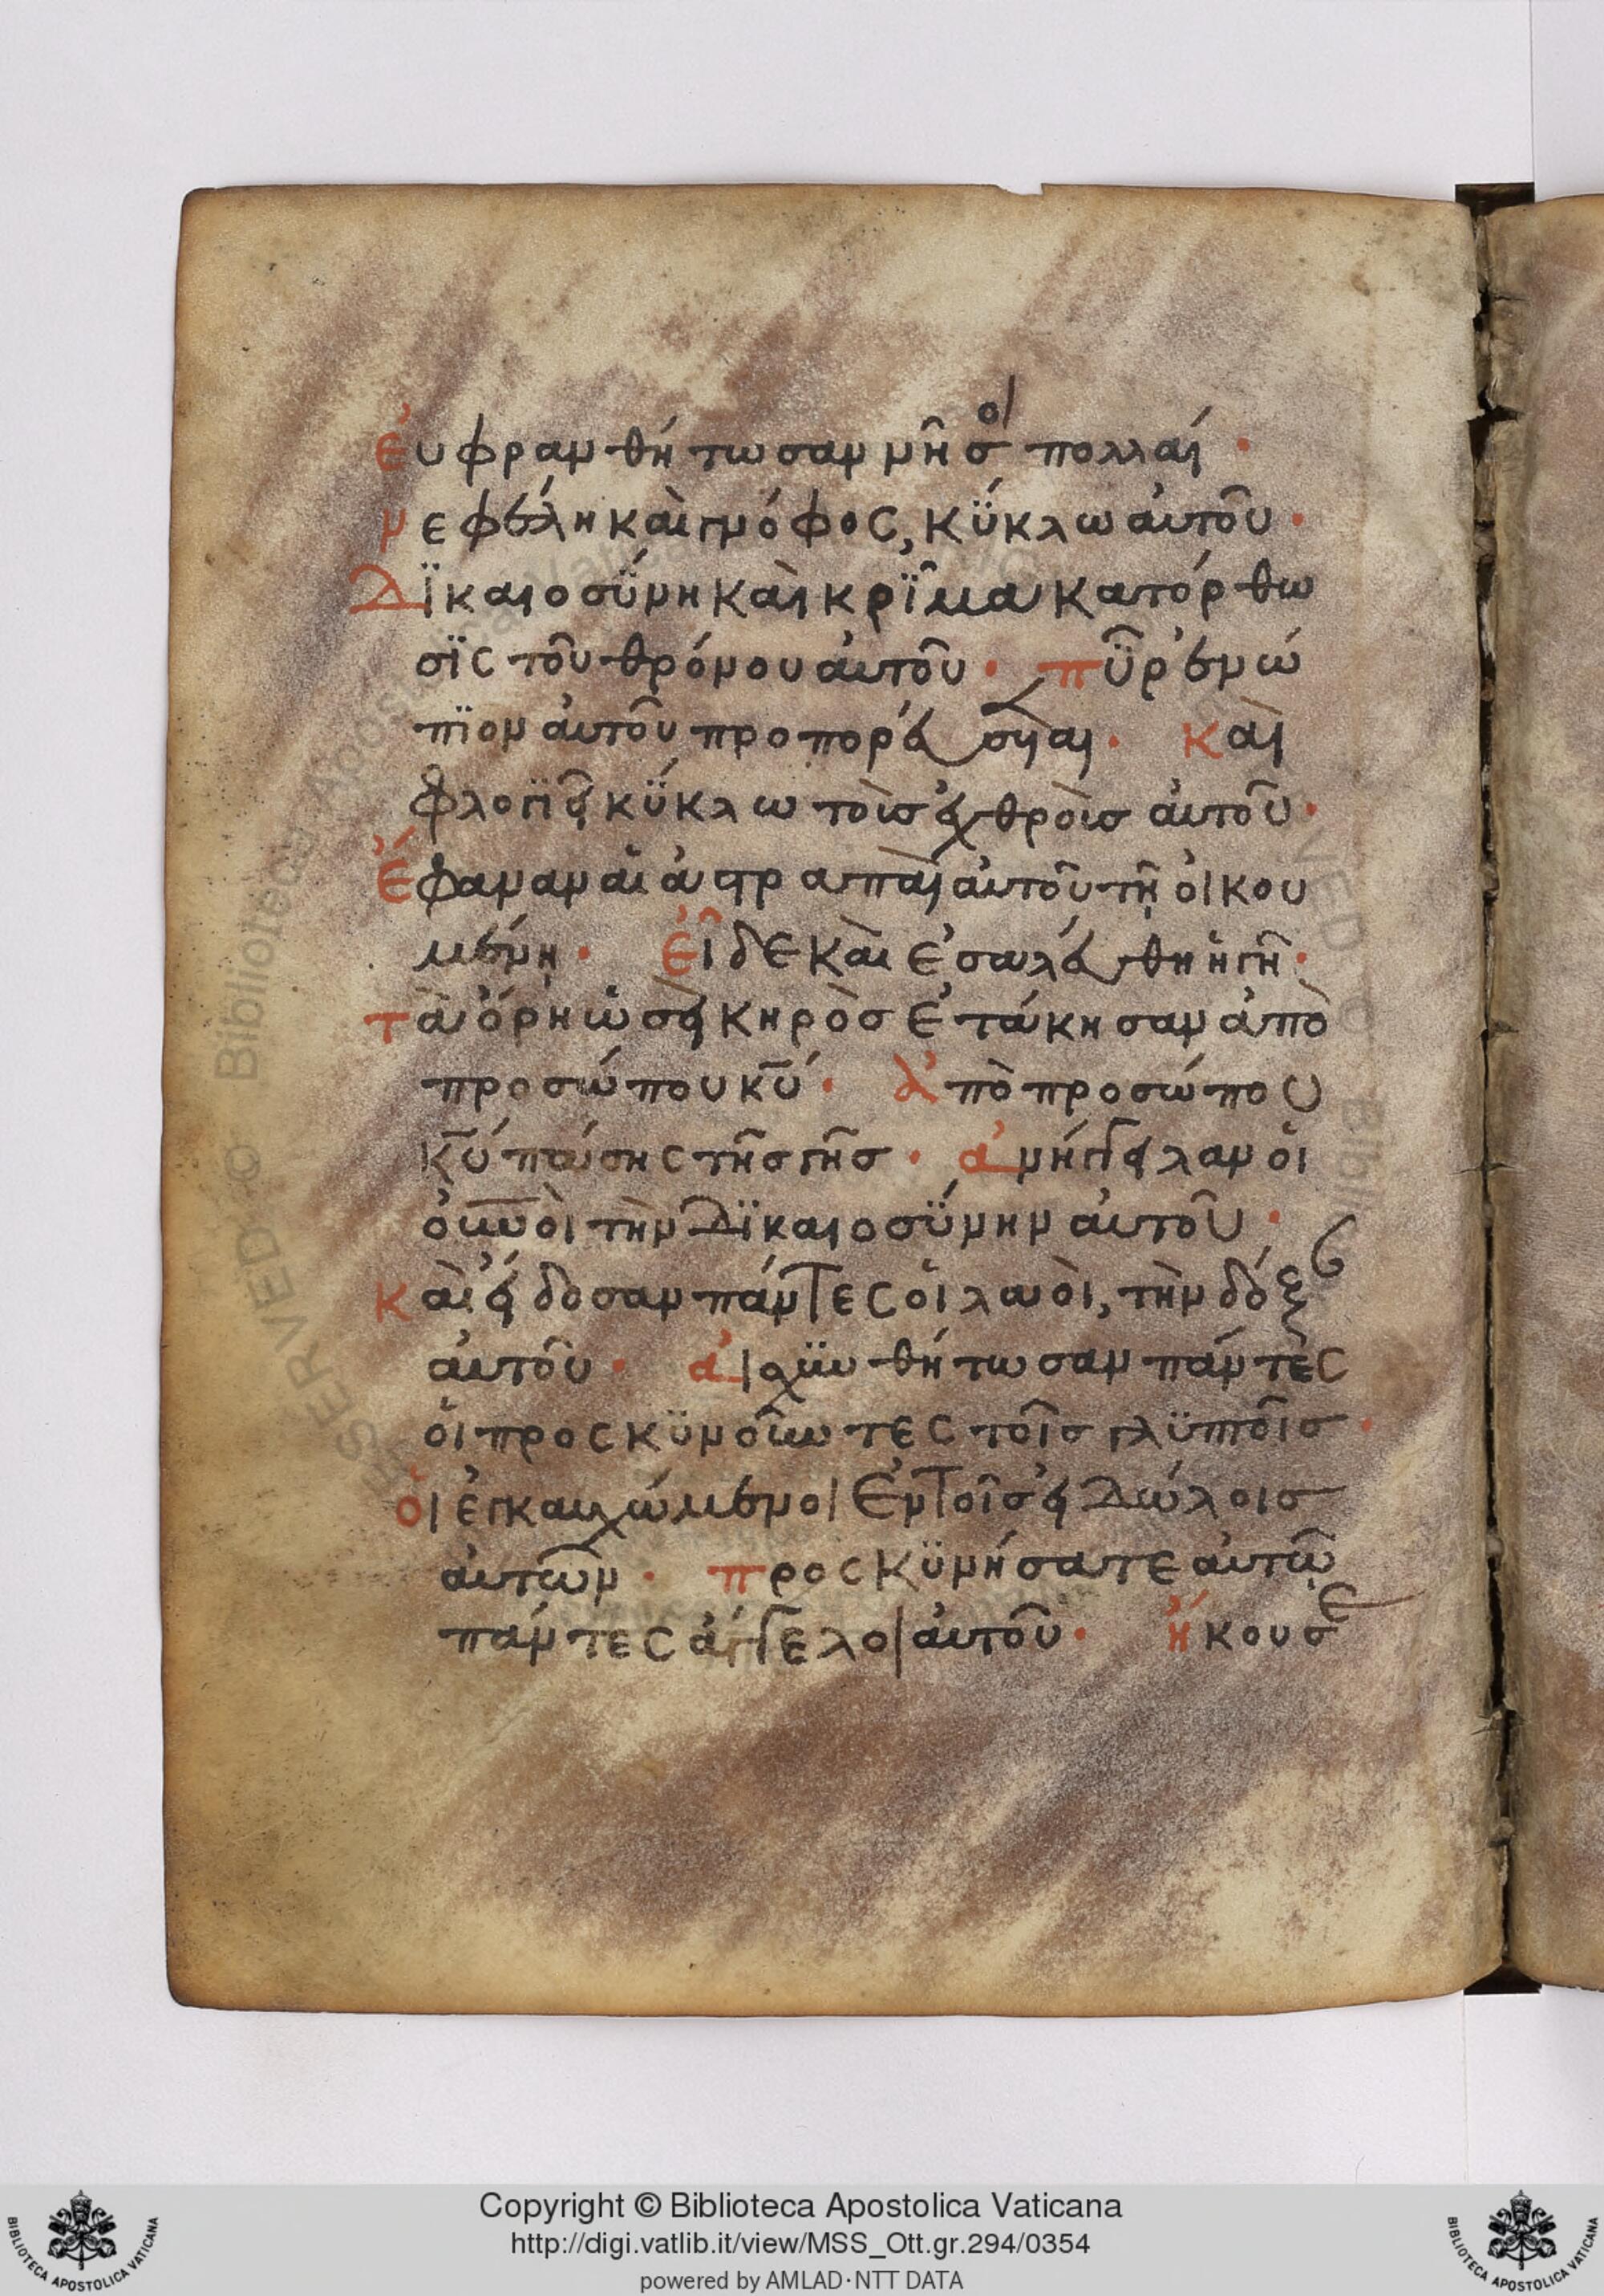 Εὐφρανθήτωσαν νῆσοι πολλαί ·
νεφέλη καὶ γνόφος, κύκλω αὐτοῦ ·
Δϊκαιοσύνη καὶ κρῖμα κατόρθω
σϊς τοῦ θρόνου αὐτοῦ · πῦρ ἐνώ
πϊον αὐτοῦ προπορεύσεται · καὶ
φλογιεῖ κύκλω τοὶσ ἐχθροὶσ αὐτοῦ ·
Ἔφαναν αἱ ἀστραπαὶ αὐτοῦ τῆ οἰκου
μένη · Εἶδε καὶ ἐσαλεύθη ἡ γῆ ·
τὰ ὄρη ὡσεὶ κηρὸσ ἐτάκησαν ἀπὸ
προσώπου κ̅υ̅ · ἀπὸ προσώπου
κ̅υ̅ πάσης τῆσ γῆσ · ἀνήγγειλαν οἱ
οὐ̅ν̅οὶ τὴν Δϊκαιοσύνην αὐτοῦ ·
Καὶ εἴδοσαν πάντες οἱ λαοὶ, τὴν δόξ
αὐτοῦ · αἰσχυνθήτωσαν πάντες
οἱ προσκϋνοῦντες τοῖσ γλϋπτοῖσ ·
οἱ ἐγκαυχώμενοι ἐν τοῖσ εἰδώλοισ
αὐτῶν · προσκϋνήσατε αὐτῶ
πάντες ἄγγελοι αὐτοῦ · ἤκουσε
Copyright © Biblioteca Apostolica Vaticana
http://digi.vatlib.it/view/MSS_Ott.gr.294/0354
powered by AMLAD·NTT DATA
BIBLIOTECA APOSTOLICA VATICANA
BIBLIOTECA APOSTOLICA VATICANA